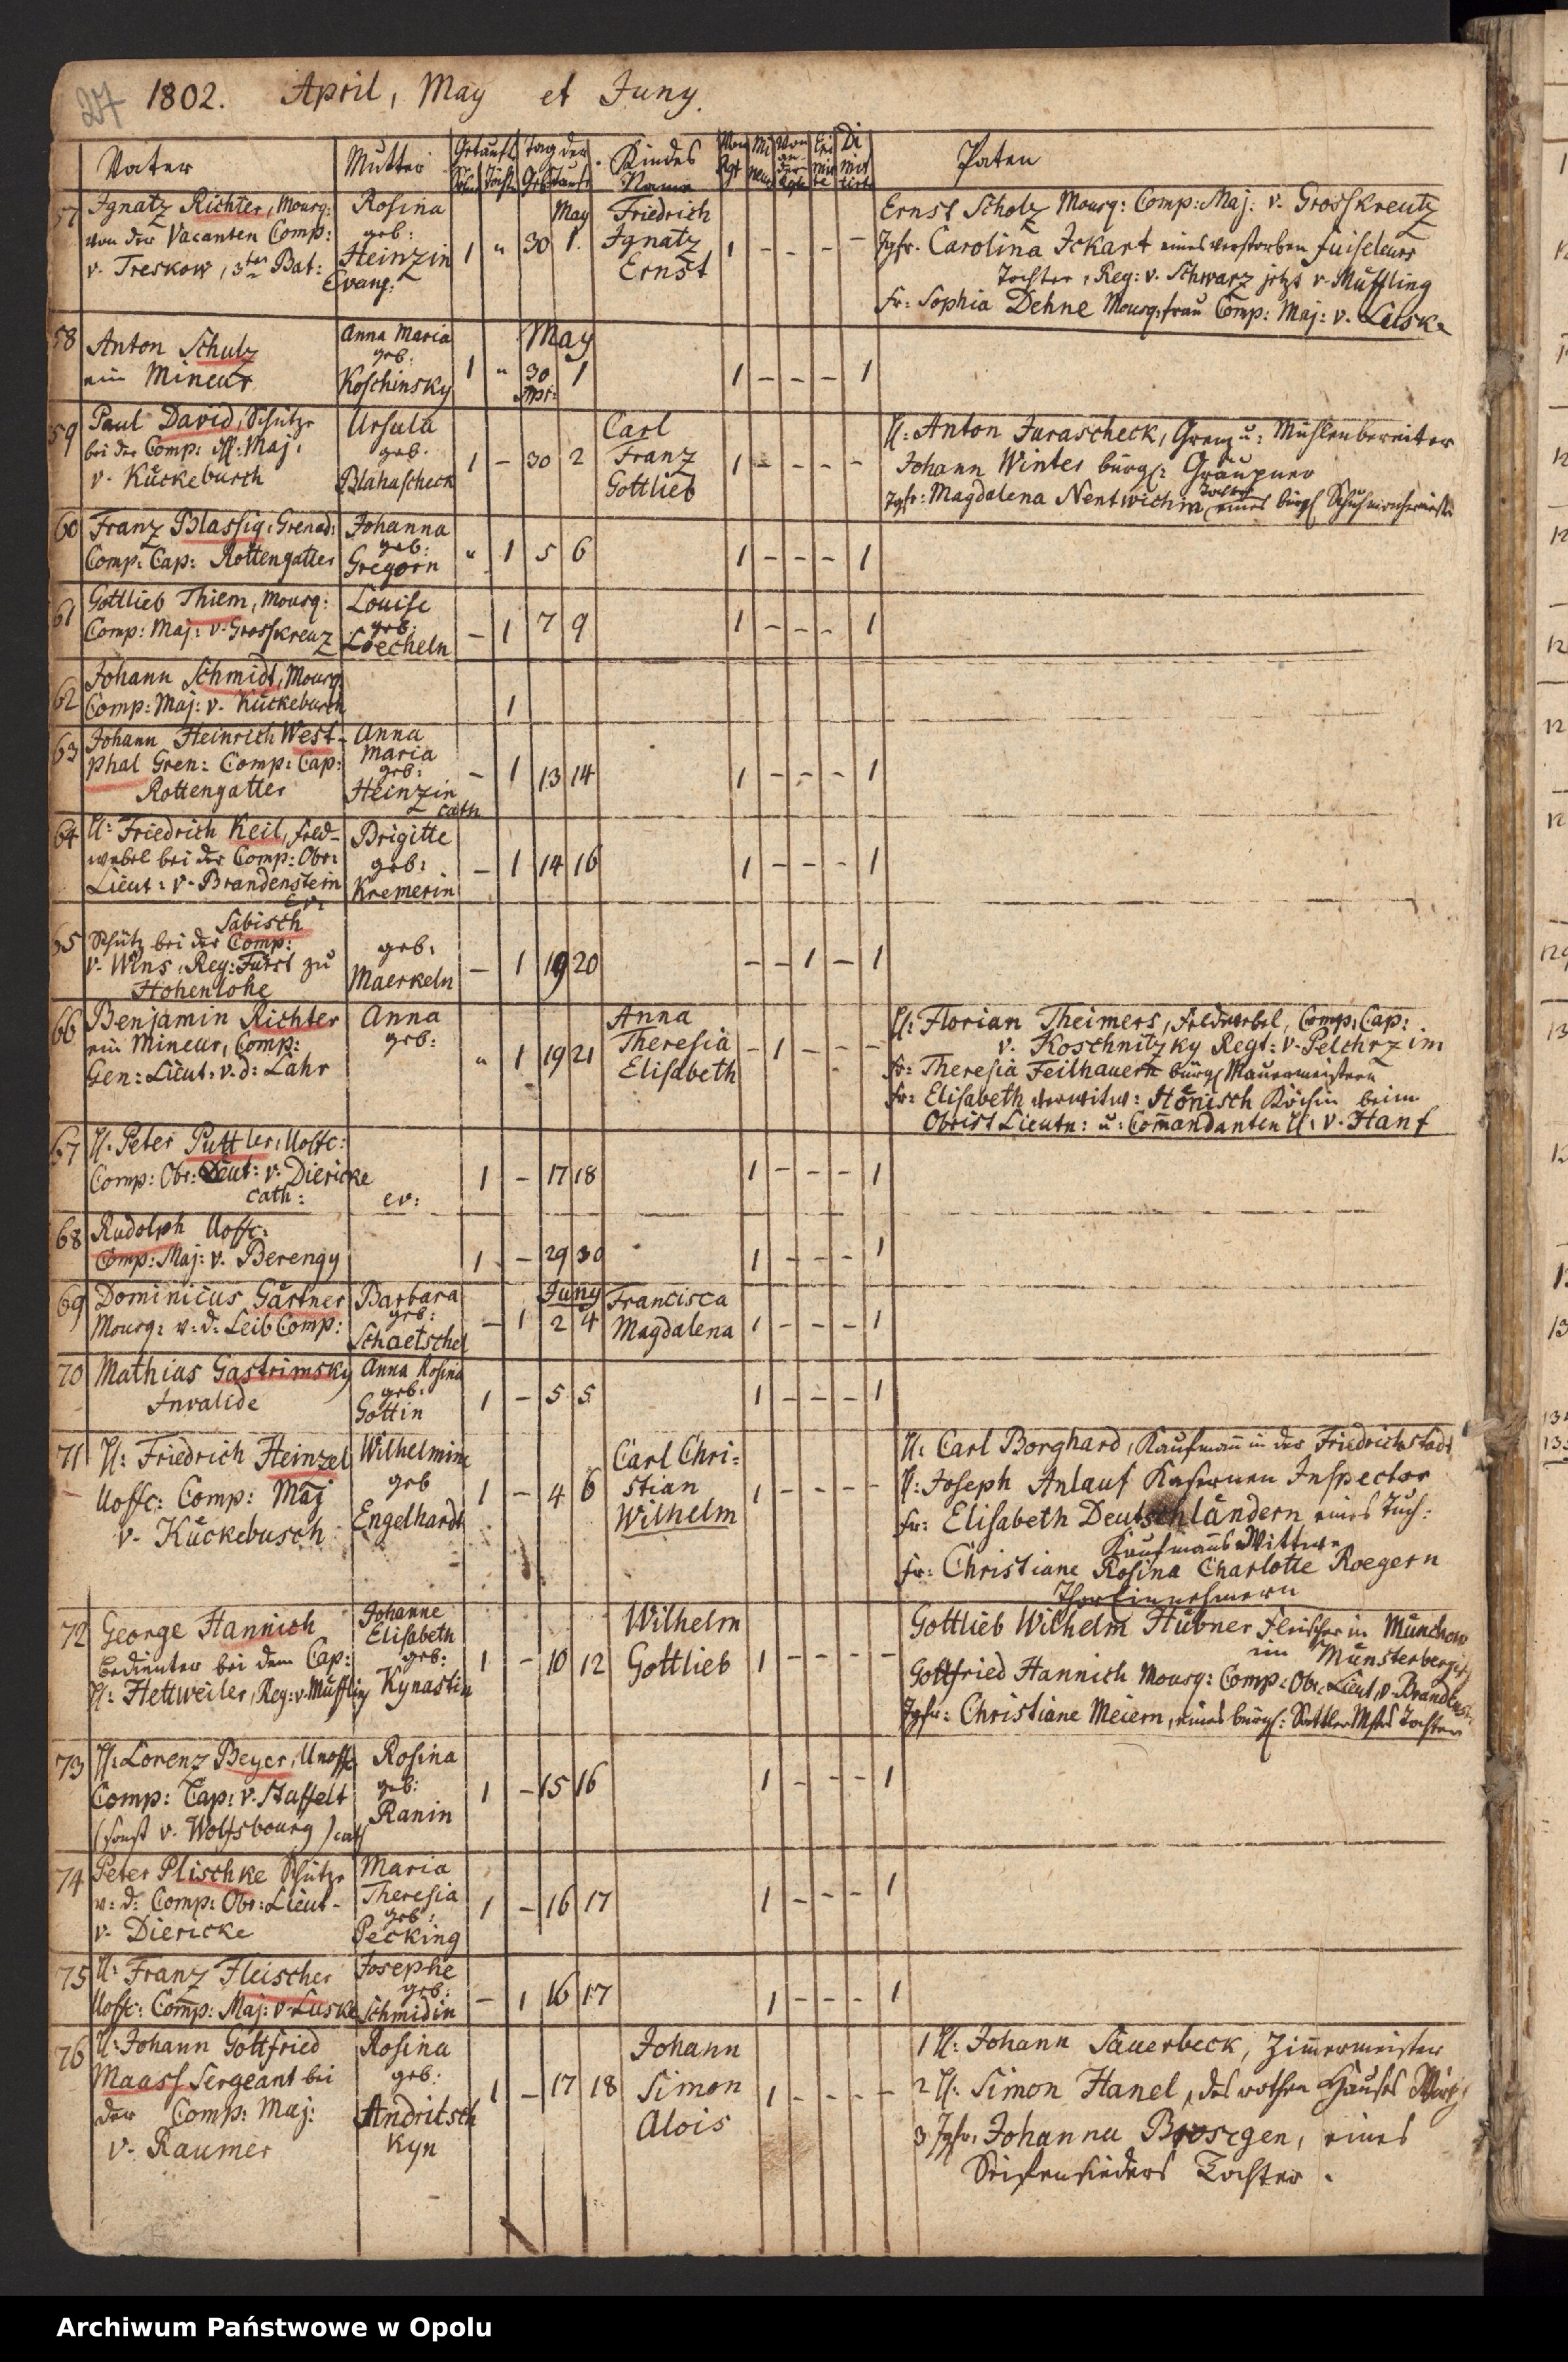 27 1802. April, May et Juny.
Vater Mutter Getauft Tag der Kindes Name Paten
57 Ignatz Richter, Mousq: Rosina May Friedrich Ernst Scholz Mousq: Comp: Maj: v. Grosskreutz
von der Vacanten Comp: geb: 1 " 30 1. Ignatz 1 - - - - Jgfr. Carolina Ickart eines verstorben
v. Treskow, 3ter Bat: Heinzin Ernst Tochter, Reg: v. Schwarz jetzt v. Müffling
Evang: Fr: Sophia Dehne Mousq: frau Comp: Maj: v. Luske
58 Anton Schulz Anna Maria May
ein Mineur geb: Koschinsky 1 " 30 Apr: 1 1 - - - 1
59 Paul David, Schütze Ursula Carl H: Anton Juraschek, Grenz u: Mühlenbereiter
bei der Comp: H: Maj: geb. 1 - 30 2 Franz 1 - - - - Johann Winter bürgl: Gräupner
v. Kückebusch Blahascheck Gottlieb Jgfr: Magdalena Nentwichin, eines bürgl Tochter
60 Franz Blassig, Grenad: Johanna
Comp: Cap: Rottengatter geb: Gregorn " 1 5 6 1 - - - 1
61 Gottlieb Thiem, Mousq: Louise
Comp: Maj: v. Grosskreuz geb: Loecheln - 1 7 9 1 - - - 1
62 Johann Schmidt, Mousq:
Comp: Maj: v. Kückebusch 1
63 Johann Heinrich West- Anna
phal Gren: Comp: Cap: Maria geb: - 1 13 14 1 - - - 1
Rottengatter Heinzin cath
64 H: Friedrich Keil, Feld- Brigitte
webel bei der Comp: Obr: geb: - 1 14 16 1 - - - 1
Lieut: v. Brandenstein Kremerin
ev:
65 Sabisch
Schütz bei der Comp: geb:
v. Wins, Reg: Fürst zu Maerkeln - 1 19 20 - - 1 - 1
Hohenlohe
66 Benjamin Richter Anna Anna H: Florian Theimers, Feldwebel, Comp: Cap:
ein Mineur, Comp: geb: " 1 19 21 Theresia - 1 - - - v. Koschnitzky Regt: v. Pelchrzim
Gen: Lieut: v. d: Lahr Elisabeth Fr: Theresia Feilhauern bürgl Mauermeistern
Fr: Elisabeth verwitw: Hönisch Köchin beim
Obrist Lieutn: u: Comandanten H: v. Hanf
67 H: Peter Puttler, Uoffc:
Comp: Obr: Lieut: v. Diericke 1 - 17 18 1 - - - 1
cath: ev:
68 Rudolph Uoffc:
Comp: Maj: v. Berengy 1 - 29 30 1 - - - 1
69 Dominicus Gärtner Barbara Juny Francisca
Mousq: v: d: Leib Comp: geb: Schaetschel - 1 2 4 Magdalena 1 - - - 1
70 Mathias Gastrimsky Anna Rosina
Invalide geb. Gottin 1 - 5 5 1 - - - 1
71 H: Friedrich Heinzel Wilhelmine Carl Chri= H: Carl Borghard, Kaufmañ in der Friedrichstadt
Uoffc: Comp: Maj geb 1 - 4 6 stian 1 - - - - H: Joseph Anlauf Kasernen Inspector
v. Kückebusch Engelhardt Wilhelm Fr: Elisabeth Deutschländern eines Tuch:
Kaufmañs Wittwe
Fr: Christiane Rosina Charlotte Roegern
Thor Einnehmern
72 George Hannich Johanne Wilhelm Gottlieb Wilhelm Hübner Fleischer in Münchow
bedienter bei dem Cap: Elisabeth geb: 1 - 10 12 Gottlieb 1 - - - - im Münsterbergsch
H: Hettweiler, Reg: v. Mufling Kynastin Gottfried Hannich Mousq: Comp: Obr: Lieut, v. Brandenst:
Jgfr: Christiane Meiern, eines bürgl: Sattler Mstrs Tochter
73 H: Lorenz Beyer, Unoffc Rosina
Comp: Cap: v. Stuffelt geb: 1 - 15 16 1 - - - 1
(sonst v. Wolfsbourg) cath Ranin
74 Peter Plischke Schütze Maria
v: d: Comp: Obr: Lieut- Theresia geb: 1 - 16 17 1 - - - 1
v. Diericke Pecking
75 H: Franz Fleischer Josephe
Uoffc: Comp: Maj: v Luske geb: Schmidin - 1 16 17 1 - - - 1
76 H: Johann Gottfried Rosina Johann 1 H: Johann Sauerbeck, Zim̄ermeister
Maass Sergeant bei geb: 1 - 17 18 Simon 1 - - - - 2 H: Simon Hanel, des rothen Hauses Wirth
der Comp: Maj: Andritsch Alois 3 Jgfr: Johanna Broesgen, eines
v. Raumer kyn Seifensieders Tochter.
Archiwum Państwowe w Opolu